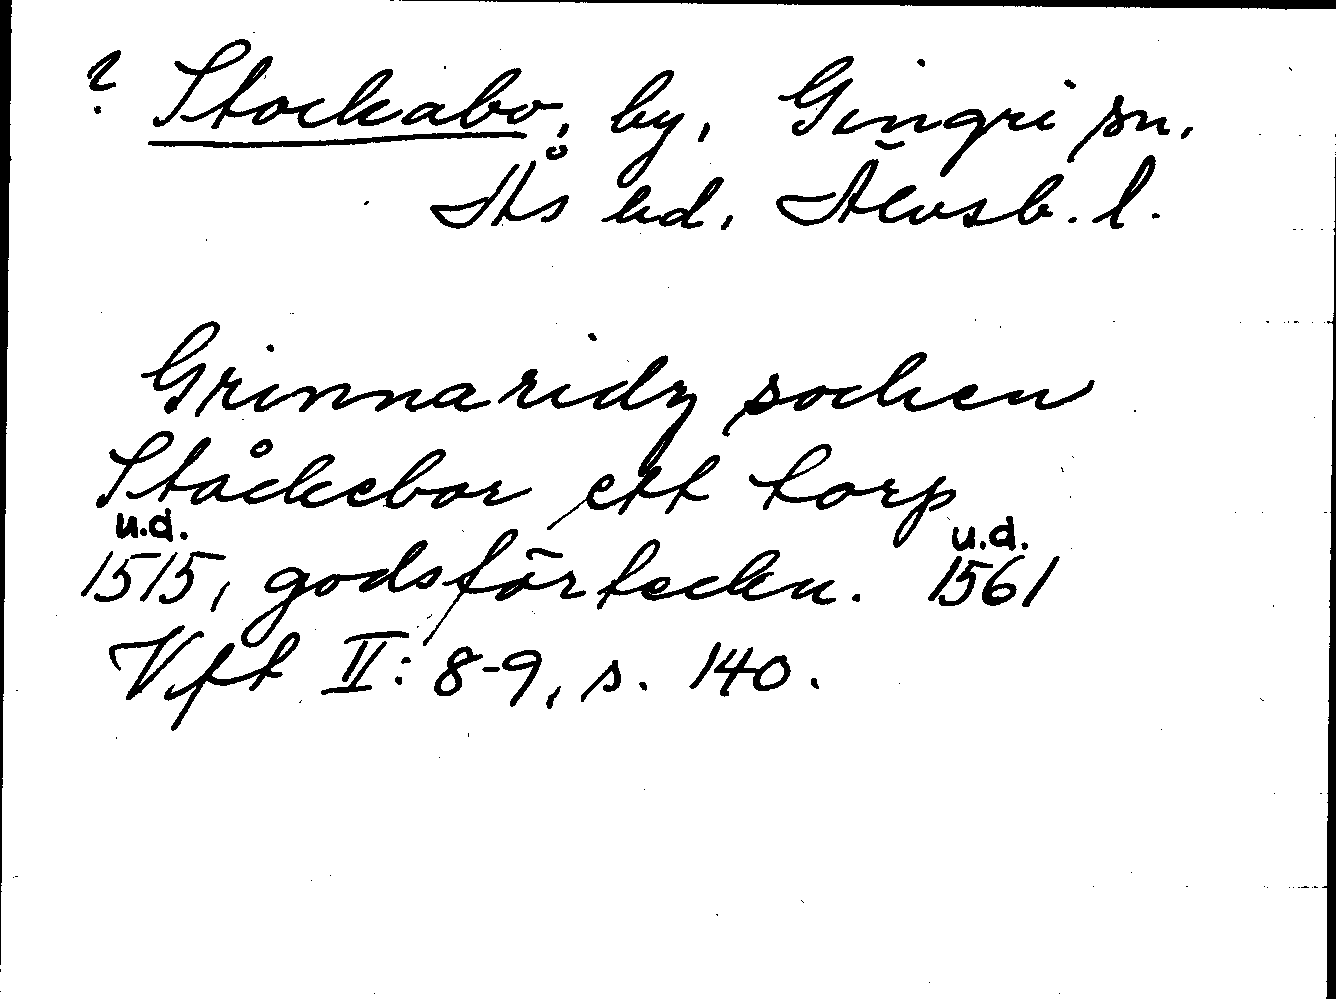 ? Stockabo, by, Gingri sn.
Ås hd. Älvsb. l.
Grinnaridz sochen
Ståckebor ett torp
u.d. u.d.
1515, godsförteckn. 1561
Vft II: 8-9, s. 140.